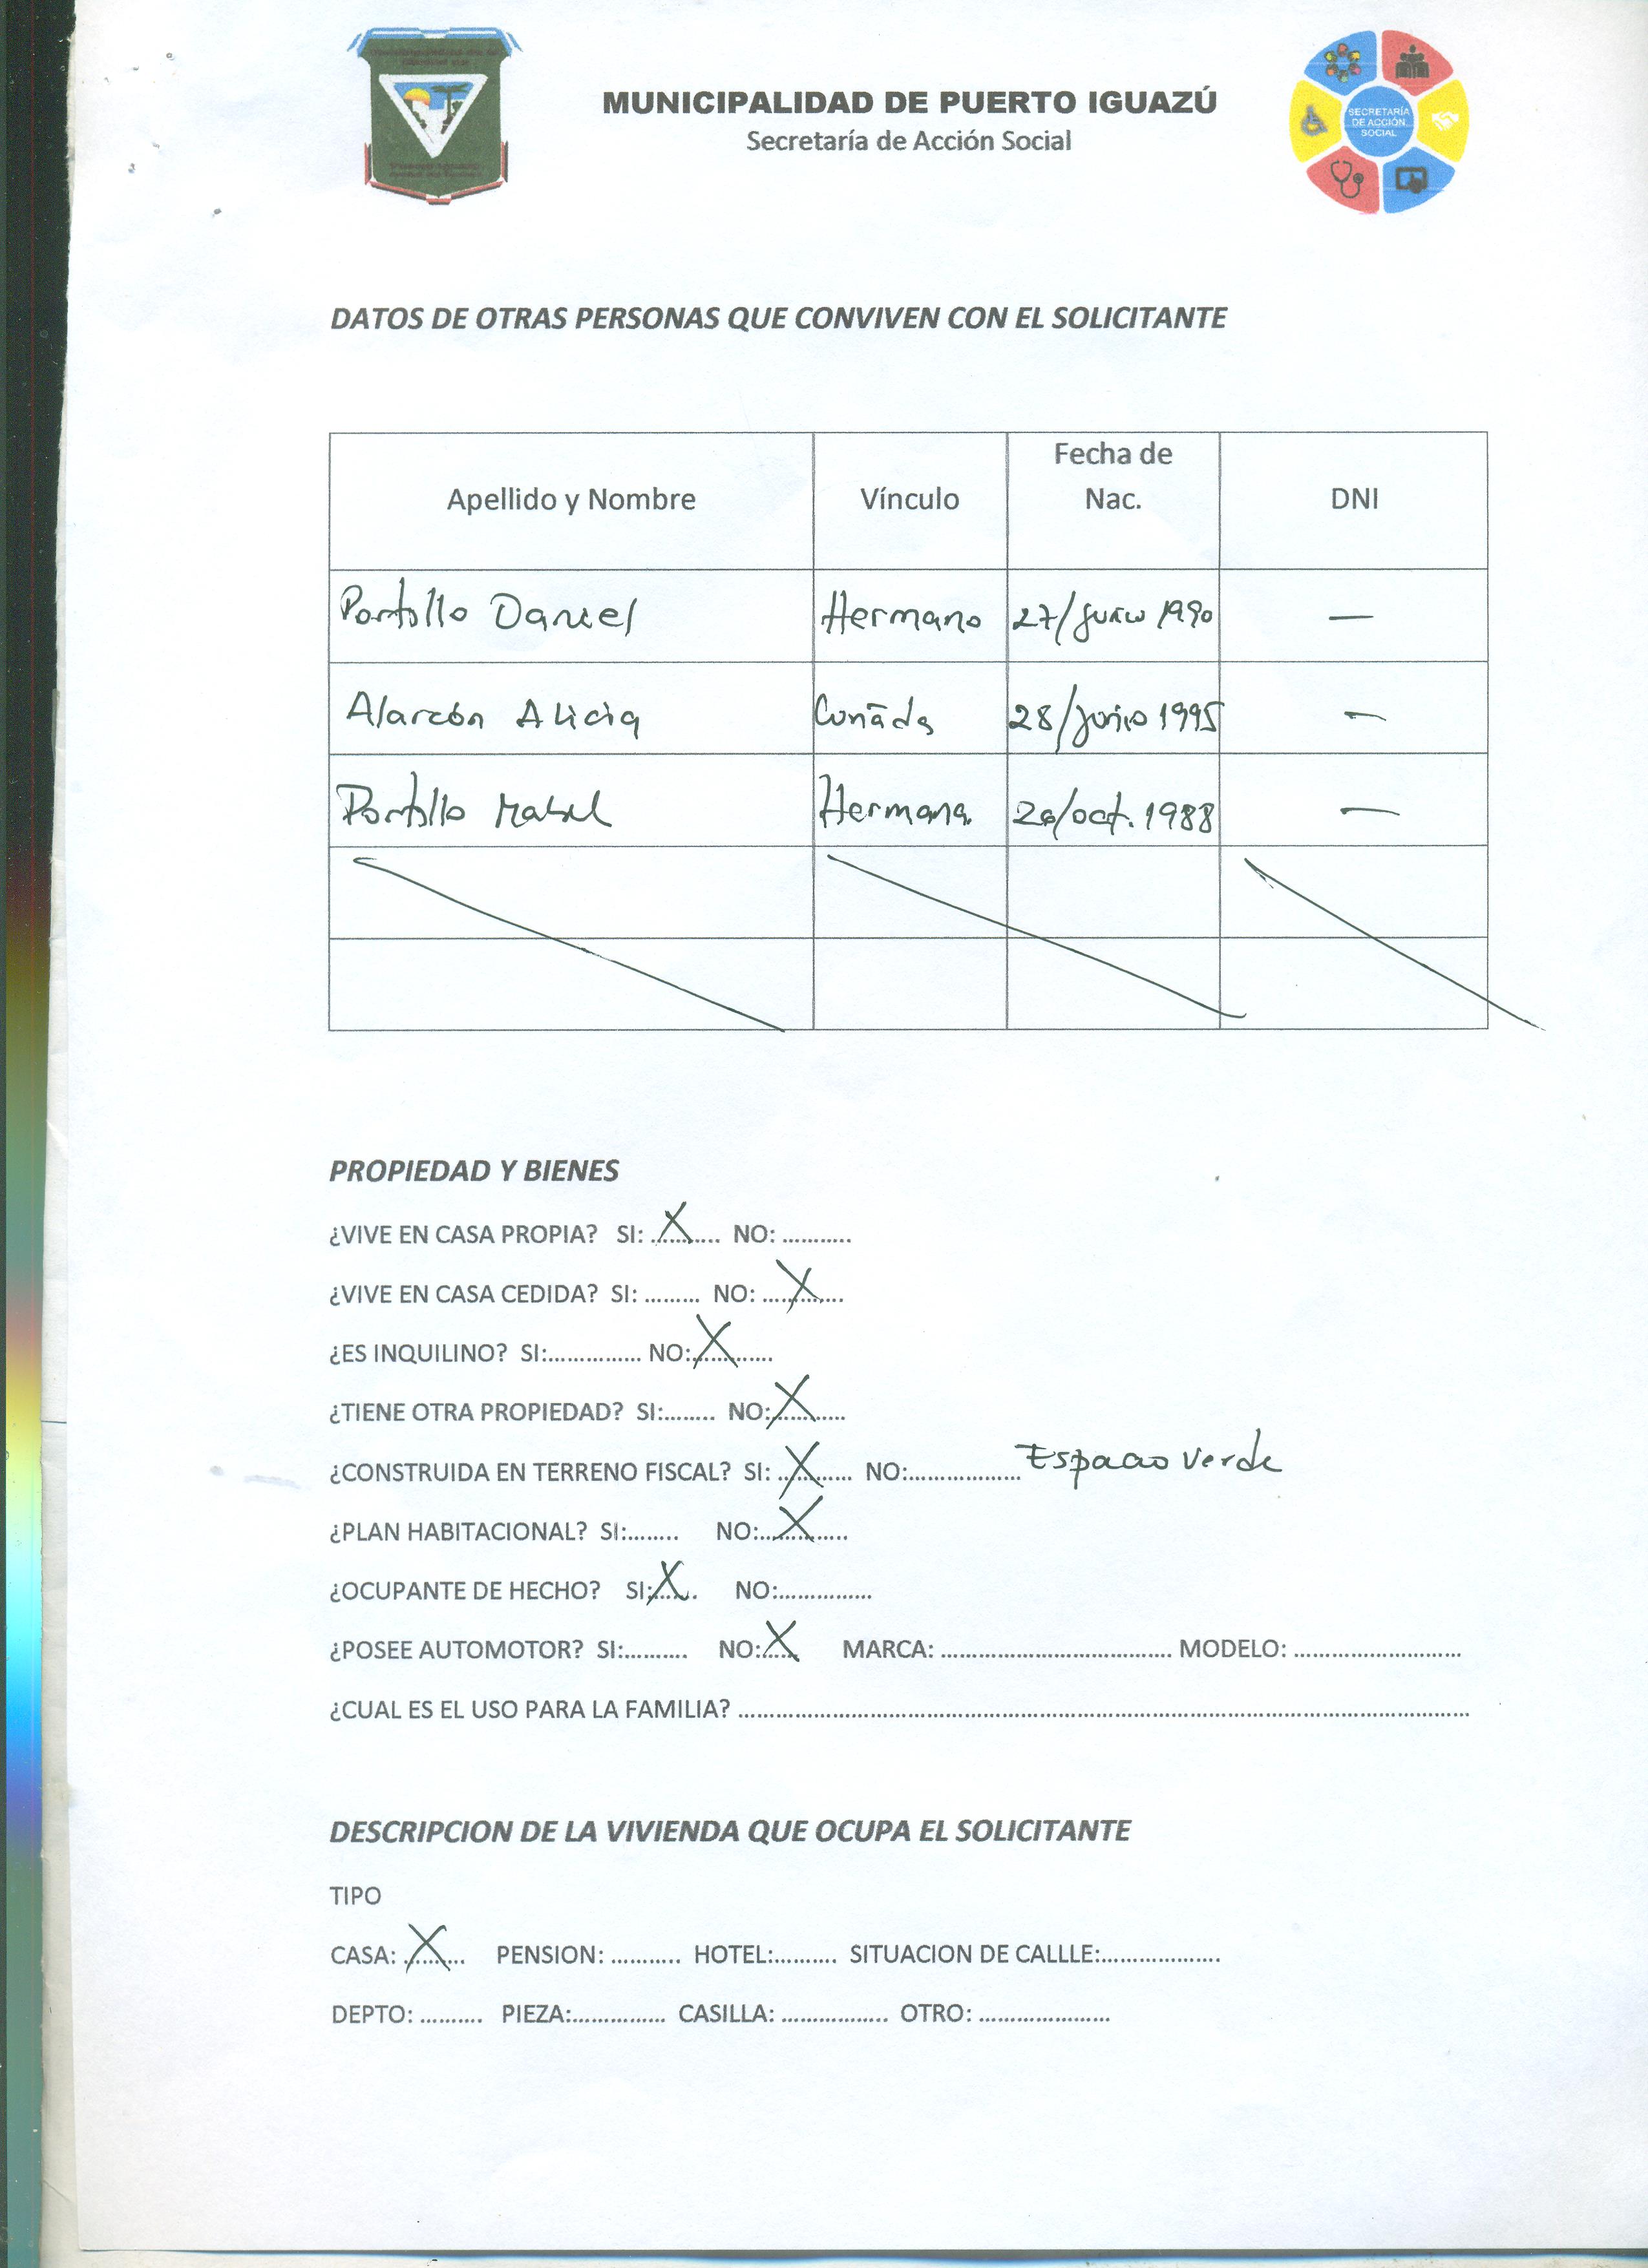 MUNICIPALIDAD DE PUERTO IGUAZÚ
Secretaría de Acción Social
SECRETARÍA
DE ACCIÓN
SOCIAL
DATOS DE OTRAS PERSONAS QUE CONVIVEN CON EL SOLICITANTE
Apellido y Nombre Vínculo Fecha de Nac. DNI
Portillo Daniel Hermano 27/junio 1990 —
Alarcón Alicia Cuñada 28/junio 1995 —
Portillo Mabel Hermana 26/oct. 1988 —
PROPIEDAD Y BIENES
¿VIVE EN CASA PROPIA? SI: ...X... NO: ...........
¿VIVE EN CASA CEDIDA? SI: ......... NO: ...X...
¿ES INQUILINO? SI:............... NO:...X...
¿TIENE OTRA PROPIEDAD? SI:........ NO:...X...
¿CONSTRUIDA EN TERRENO FISCAL? SI: ...X... NO:.................. Espacio Verde
¿PLAN HABITACIONAL? SI:........ NO:...X...
¿OCUPANTE DE HECHO? SI:...X... NO:...............
¿POSEE AUTOMOTOR? SI:.......... NO:...X... MARCA: ..................................... MODELO: ...........................
¿CUAL ES EL USO PARA LA FAMILIA? ........................................................................
DESCRIPCION DE LA VIVIENDA QUE OCUPA EL SOLICITANTE
TIPO
CASA: ...X... PENSION: ........... HOTEL:.......... SITUACION DE CALLLE:...................
DEPTO: .......... PIEZA:............... CASILLA: ................. OTRO: .....................